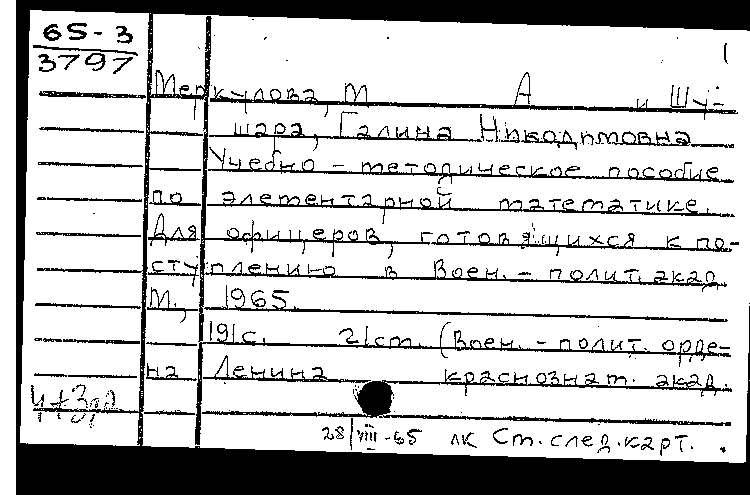 65-3
3797
Меркулова, М А и Шу-
шара, Галина Никодимовна
Учебно - методическое пособие
по элементарной математике.
Для офицеров, готовящихся к по-
ступлению в Воен. - полит. акад.
М., 1965.
191 с. 21 см. (Воен. - полит. орде-
на Ленина краснознам. акад.
28/VIII-65 лк Ст. след. карт.